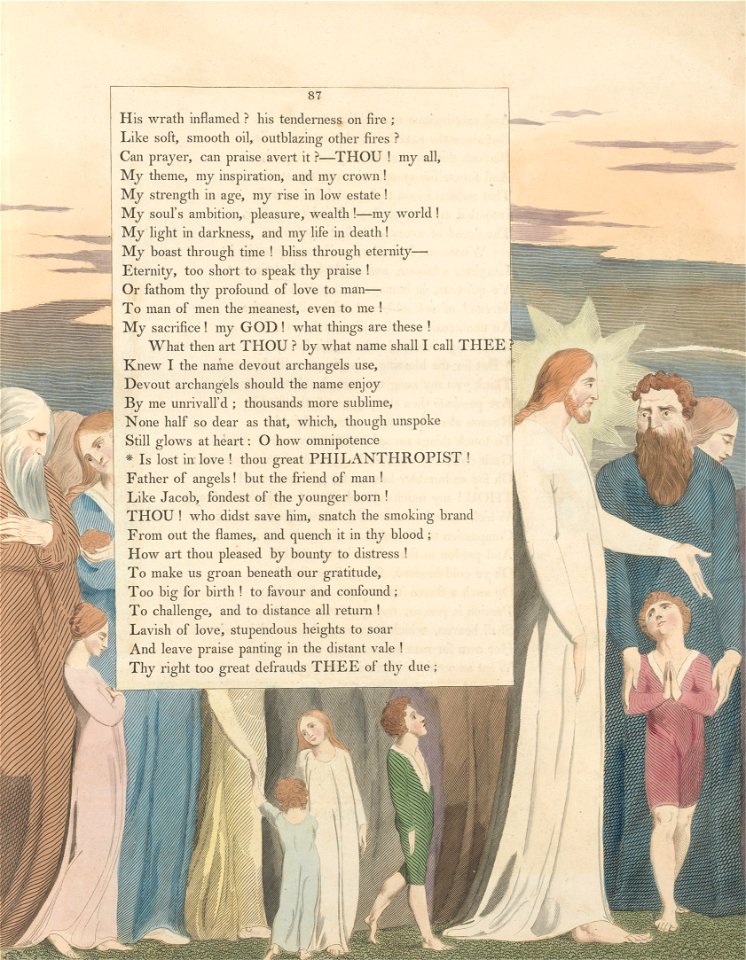 87
His wrath inflamed? his tenderness on fire;
Like soft, smooth oil, outblazing other fires?
Can prayer, can praise avert it?—THOU! my all,
My theme, my inspiration, and my crown!
My strength in age, my rise in low estate!
My soul's ambition, pleasure, wealth!—my world!
My light in darkness, and my life in death!
My boast through time! bliss through eternity—
Eternity, too short to speak thy praise!
Or fathom thy profound of love to man—
To man of men the meanest, even to me!
My sacrifice! my GOD! what things are these!
What then art THOU? by what name shall I call THEE?
Knew I the name devout archangels use,
Devout archangels should the name enjoy
By me unrivall'd; thousands more sublime,
None half so dear as that, which, though unspoke
Still glows at heart: O how omnipotence
* Is lost in love! thou great PHILANTHROPIST!
Father of angels! but the friend of man!
Like Jacob, fondest of the younger born!
THOU! who didst save him, snatch the smoking brand
From out the flames, and quench it in thy blood;
How art thou pleased by bounty to distress!
To make us groan beneath our gratitude,
Too big for birth! to favour and confound;
To challenge, and to distance all return!
Lavish of love, stupendous heights to soar
And leave praise panting in the distant vale!
Thy right too great defrauds THEE of thy due;